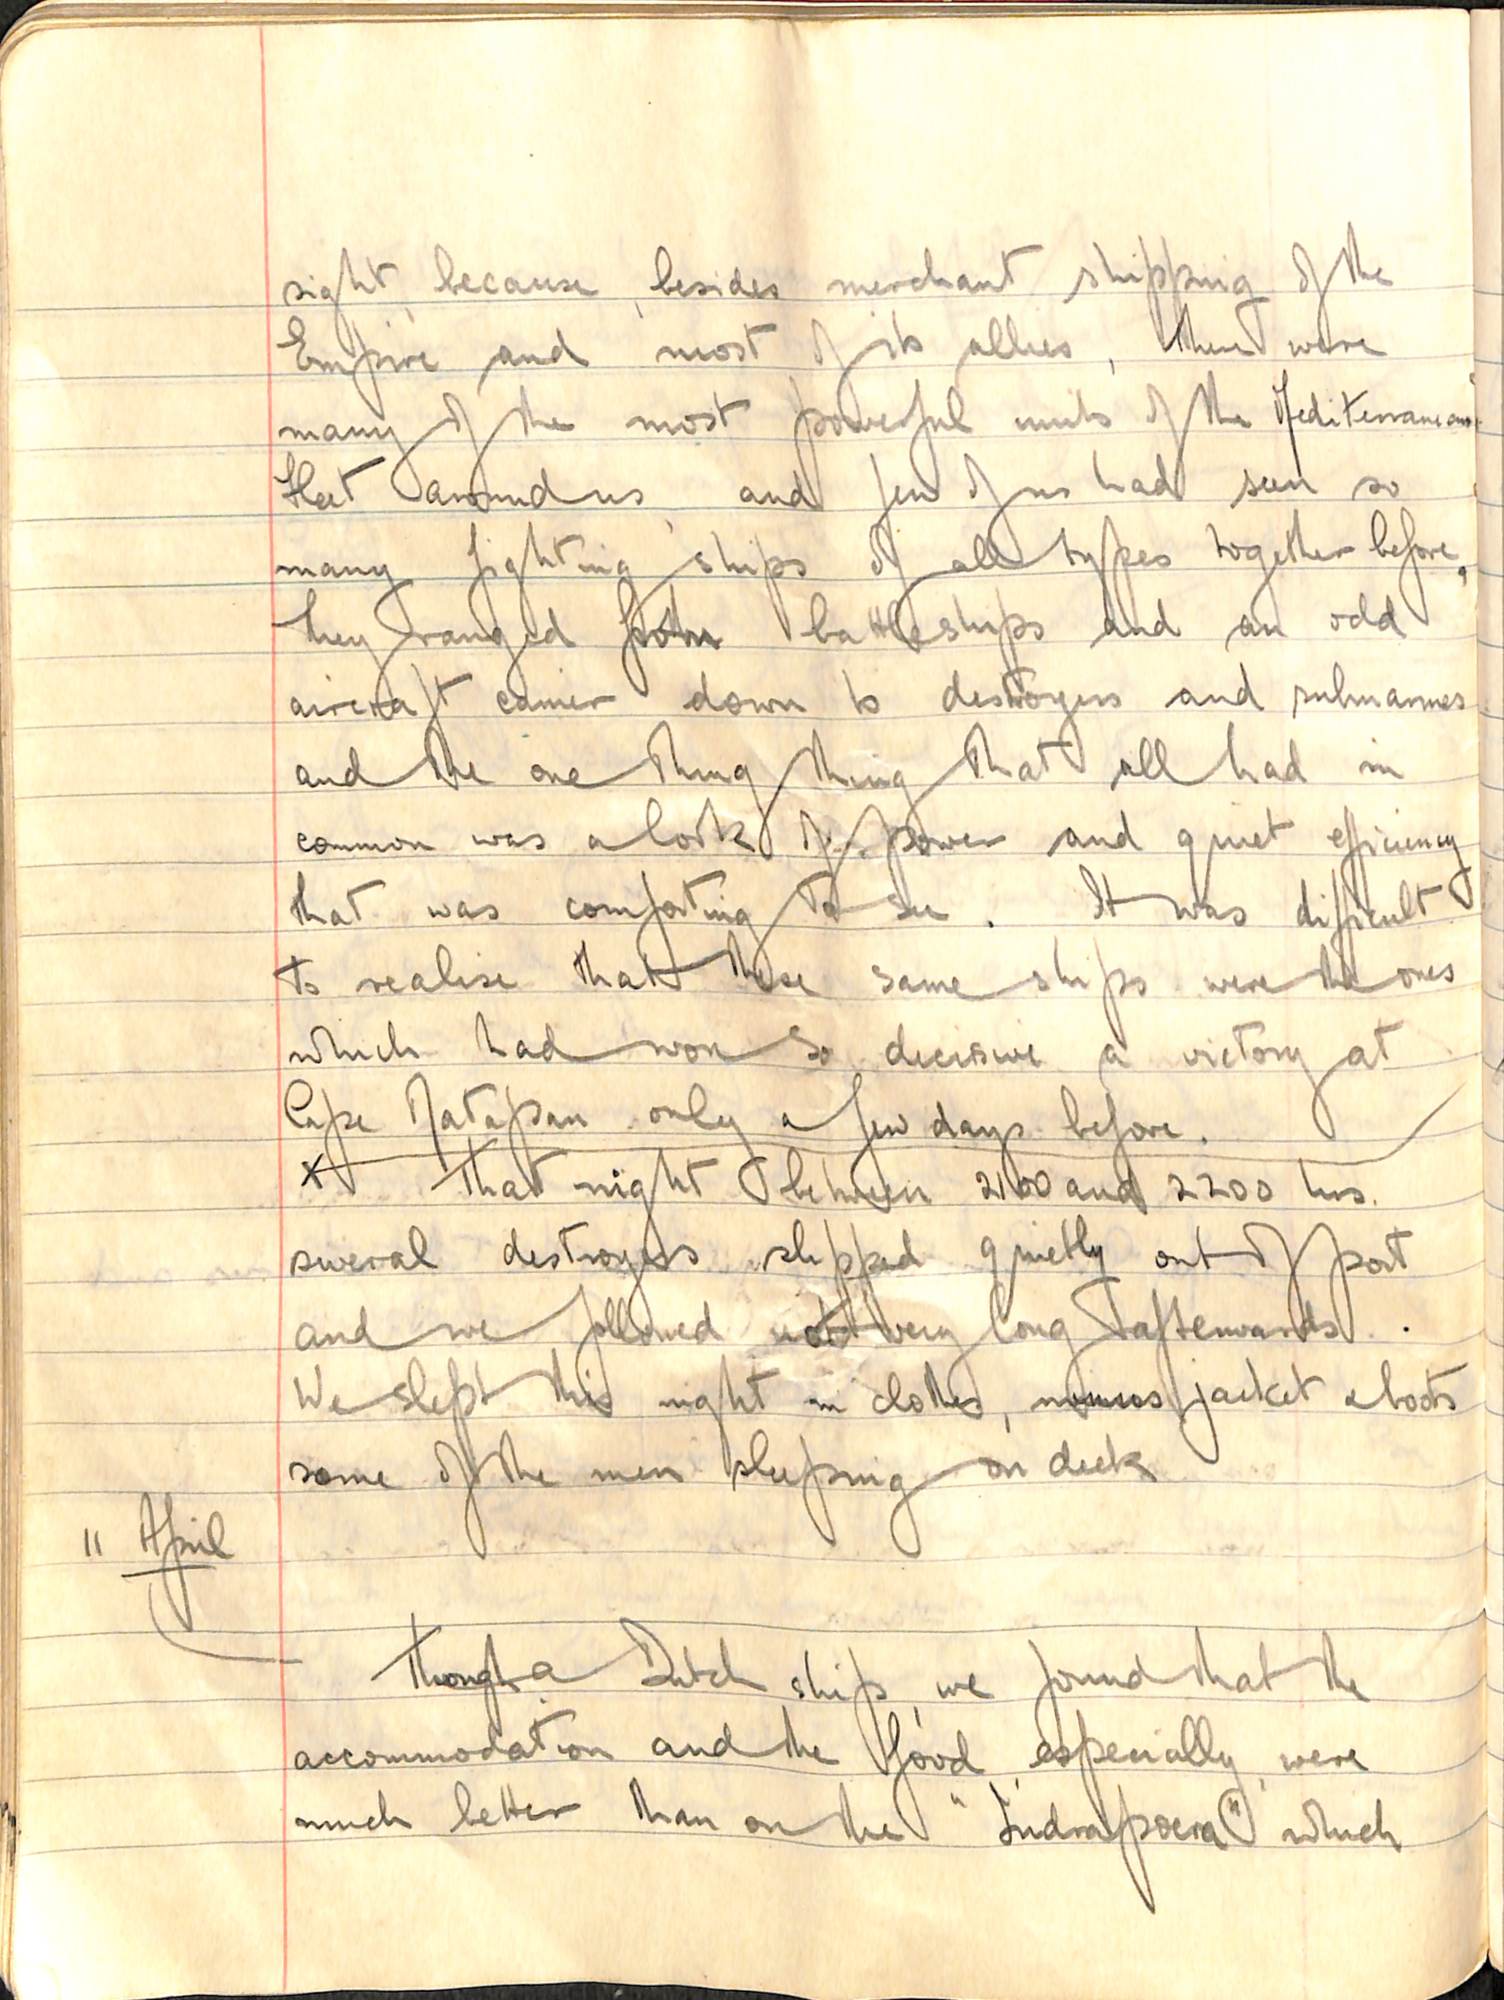 sight, because, besides merchant shipping of the
Empire and most of its allies, there were
many of the most powerful units of the Mediterranean
Fleet around us, and few of us had seen so
many fighting ships of all types together before.
They ranged from battleships and an odd
aircraft carrier down to destroyers and submarines
and the one thing thing that all had in
common was a look of power and quiet efficiency
that was comforting to see. It was difficult
to realise that these same ships were the ones
which had won so decisive a victory at
Cape Matapan only a few days before.
x That night between 2100 and 2200 hrs.
several destroyers slipped quietly out of port
and we followed not very long afterwards.
We slept this night in clothes, minus jacket & boots
some of the men sleeping on deck
11 April
Though a Dutch ship, we found that the
accommodation and the food, especially, were
much better than on the "Indrapoera" which